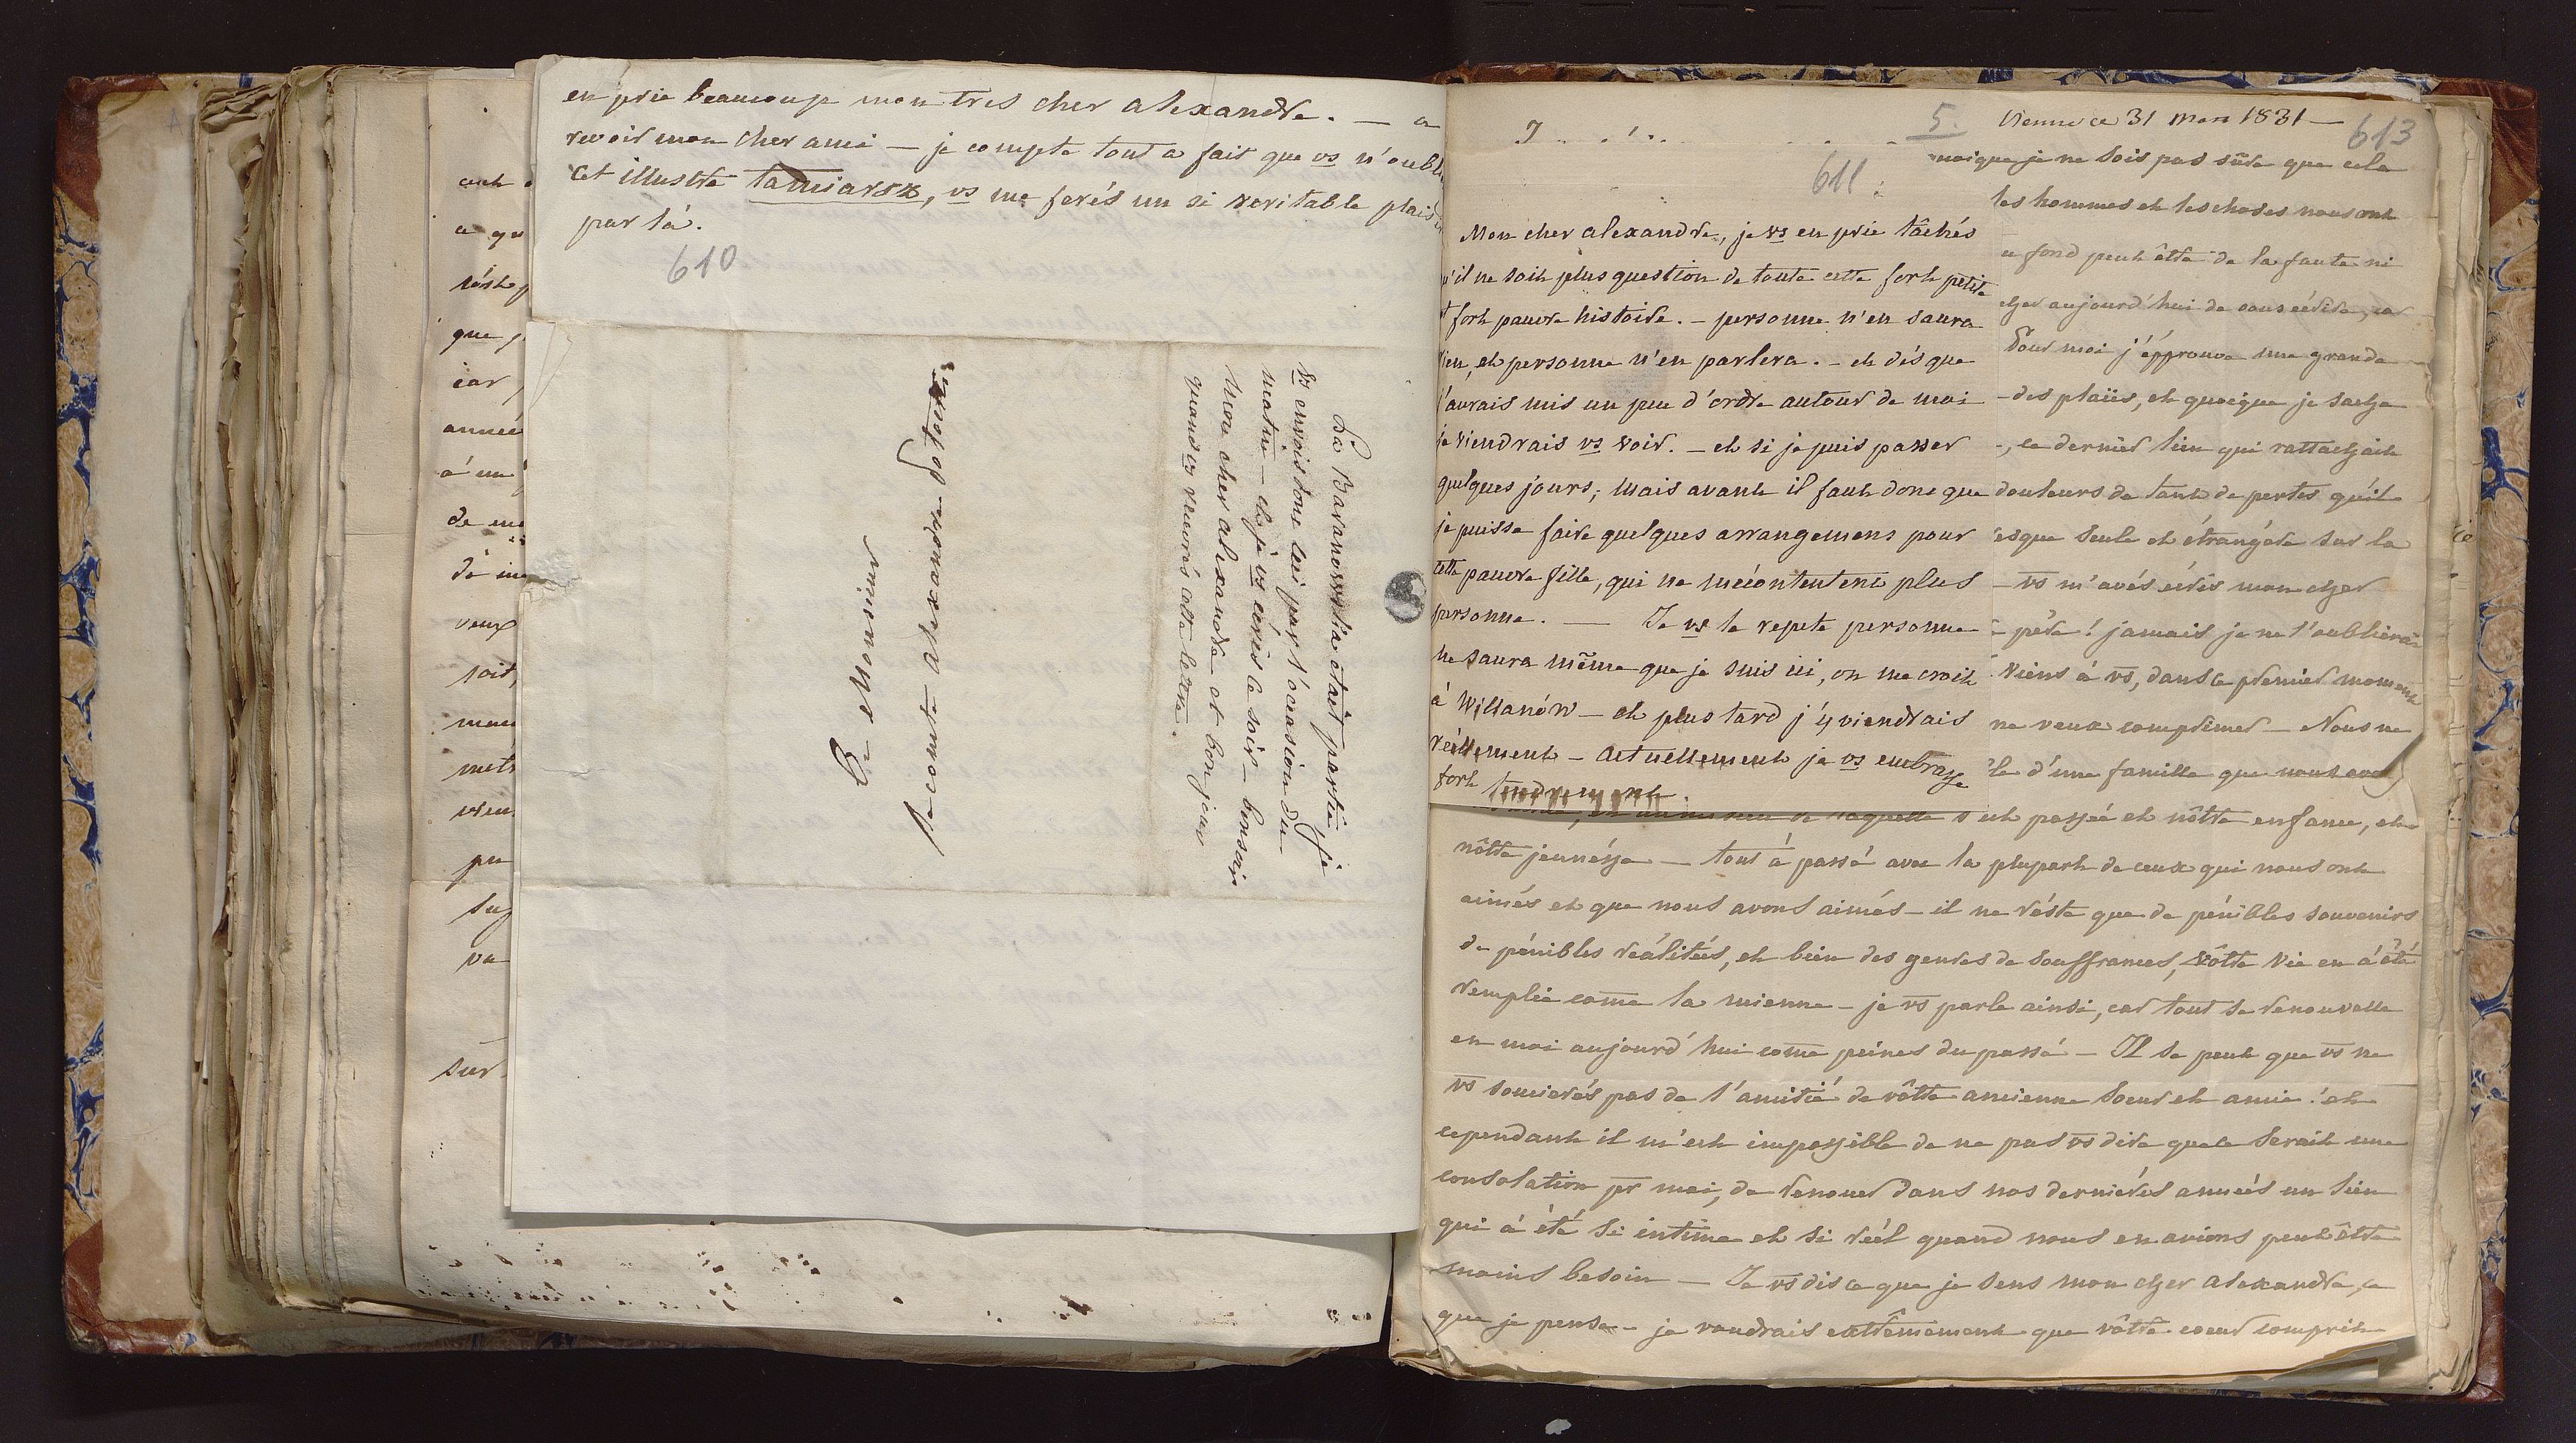 en prie beaucoup mon tres cher alexandre. — a
revoir mon cher ami — je compte tout a fait que vs n'oubl
cet illustre tamiarsz, vs me ferés un si veritable plais
par là.
610
La Baranowska était partie, je
vs envois donc ceci par l'occasion du
matin — et je vs écris ce soir — bonsoir
mon cher alexandre et bon jour
quand vs recevrés cette lettre.
à Monsieur
le comte alexandre Potocki
cuh
ce qu
que
car
année
à un
de
veux
soit,
mett
pu
va
sur
5
611
Mon cher alexandre, je vs en prie tâchés
qu'il ne soit plus question de toute cette fort petite
et fort pauvre histoire. — personne n'en saura
rien, et personne n'en parlera. — et dés que
j'aurais mis un peu d'ordre autour de moi
je viendrais vs voir. — et si je puis passer
quelques jours; mais avant il faut donc que
je puisse faire quelques arrangemens pour
cette pauvre fille, qui ne mécontentent plus
personne. — Je vs le repete personne
ne saura même que je suis ici, on me croit
à Willanów — et plus tard j'y viendrais
réellement — actuellement je vs embrasse
fort tendrement.
Vienne ce 31 Mars 1831 —
613
quoique je ne sois pas sûre que cela
les hommes et les choses nous ont
ce fond peut être de la faute ni
cher aujourd'hui de vous écrire, car
Pour moi j'épprouve une grande
des plaïes, et quoique je sache
ce dernier lien qui rattachait
douleurs de tant de pertes qu'il
esque seule et étrangére sur la
— vs m'avés écris mon cher
père! jamais je ne l'oublierai
viens à vs, dans ce premier moment
ne veux comprimer — Nous ne
d'une famille que nous avo
de laquelle s'est passée et nôtre enfance, et
nôtre jeunesse — tout à passé avec la plupart de ceux qui nous ont
aimés et que nous avons aimés — il ne réste que de pénibles souvenirs
de pénibles réalitées, et bien des genres de souffrances, vôtre vie en à été
remplie come la mienne — je vs parle ainsi, car tout se renouvelle
en moi aujourd'hui come peines du passé — Il se peut que vs ne
vs soucierés pas de l'amitié de vôtre ancienne soeur et amie! et
cependant il m'est impossible de ne pas vs dire que ce serait une
consolation pr moi, de renouer dans nos derniéres années un lien
qui à été si intime et si réél quand nous en avions peut être
moins besoin — Je vs dis ce que je sens mon cher alexandre, ce
que je pense — je voudrais extrêmement que vôtre coeur comprit